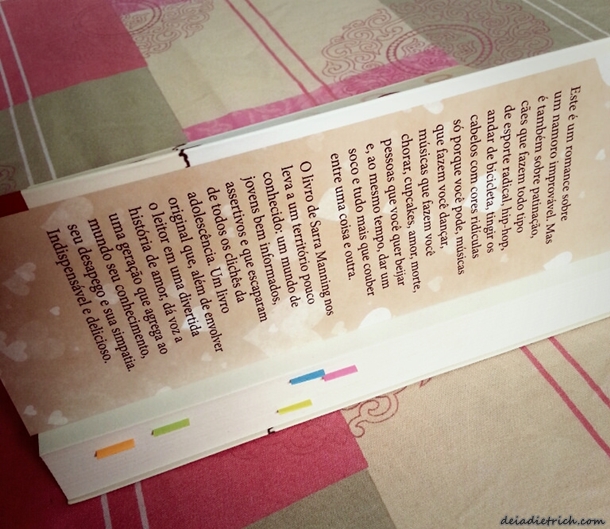 Este é um romance sobre
um namoro improvável. Mas
é também sobre patinação,
cães que fazem todo tipo
de esporte radical, hip-hop,
andar de bicicleta, tingir os
cabelos com cores ridículas
só porque você pode, músicas
que fazem você dançar,
músicas que fazem você
chorar, cupcakes, amor, morte,
pessoas que você quer beijar
e, ao mesmo tempo, dar um
soco e tudo mais que couber
entre uma coisa e outra.
O livro de Sarra Manning nos
leva a um território pouco
conhecido: um mundo de
jovens bem informados,
assertivos e que escaparam
de todos os clichês da
adolescência. Um livro
original que, além de envolver
o leitor em uma divertida
história de amor, dá voz a
uma geração que agrega ao
mundo seu conhecimento,
seu desapego e sua simpatia.
Indispensável e delicioso.
deiadietrich.com